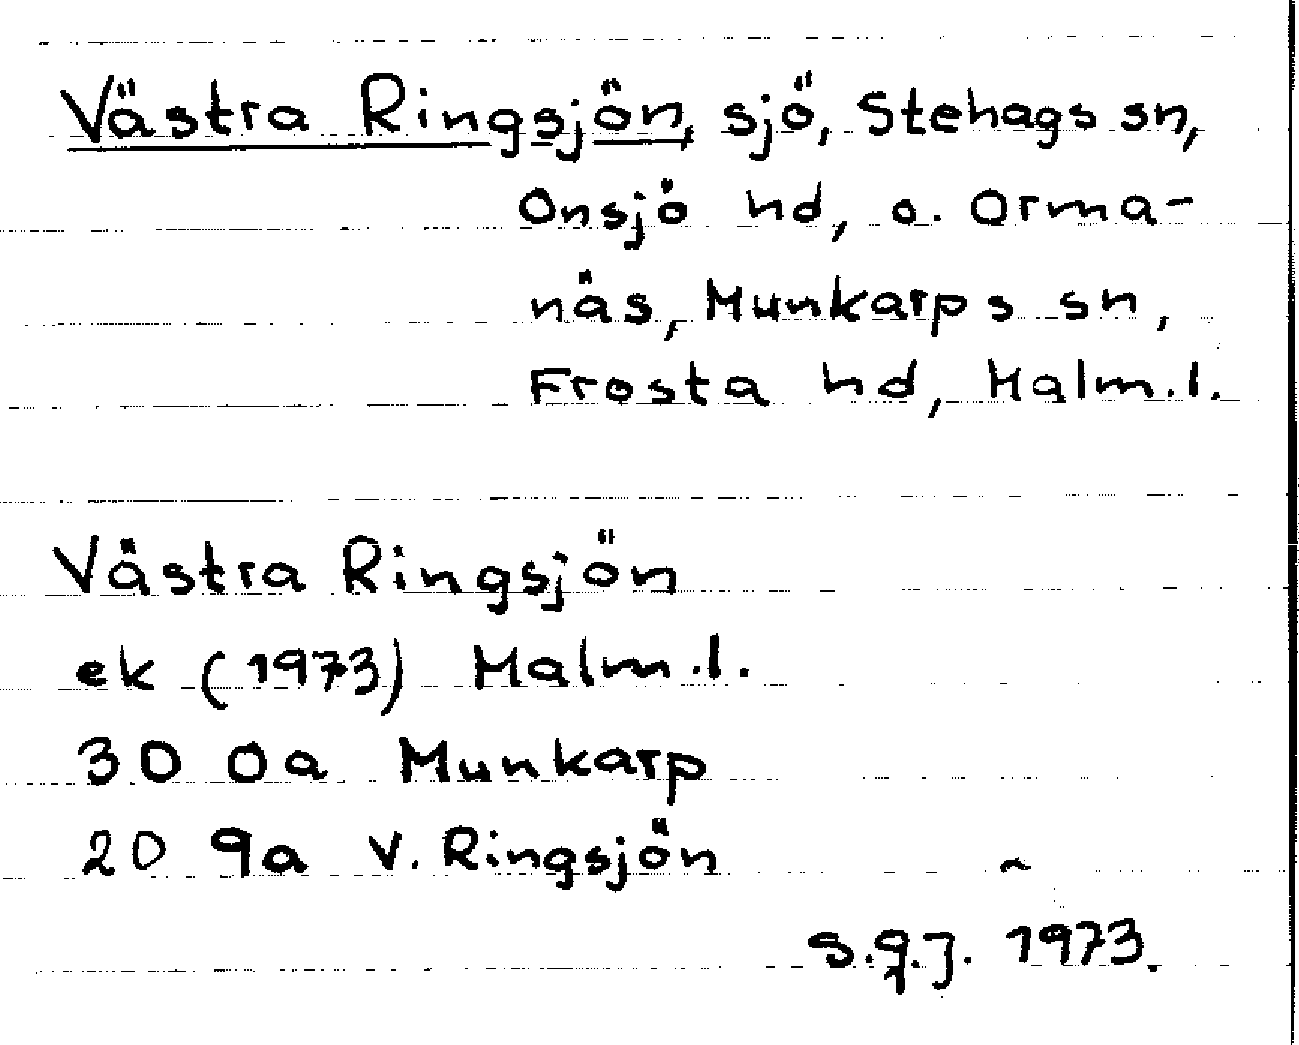 Västra Ringsjön, sjö, Stehags sn,
Onsjö hd, o. Orma-
näs, Munkarps sn,
Frosta hd, Malm.l.
Västra Ringsjön
ek (1973) Malm.l.
3D 0a Munkarp
2D 9a V. Ringsjön
S.G.J. 1973.